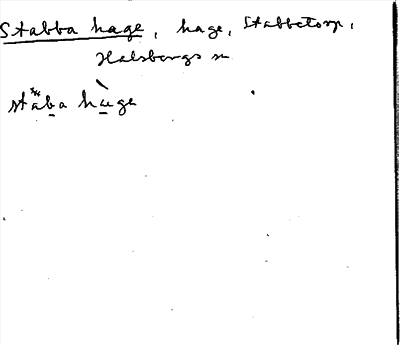 Stabba hage, hage, Stabbetorp,
Halsbergs sn
staba hage